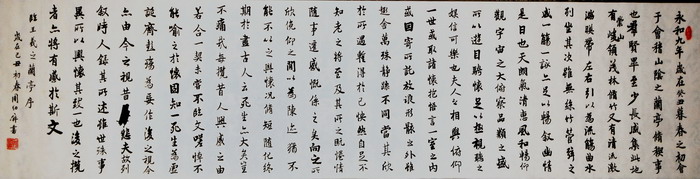 永和九年歲在癸丑暮春之初會
于會稽山陰之蘭亭脩稧事
也羣賢畢至少長咸集此地
有崇山峻領茂林脩竹又有清流激
湍暎帶左右引以為流觴曲水
列坐其次雖無絲竹管弦之
盛一觴一詠亦足以暢敘幽情
是日也天朗氣清惠風和暢仰
觀宇宙之大俯察品類之盛
所以遊目騁懷足以極視聽之
娛信可樂也夫人之相與俯仰
一世或取諸懷抱悟言一室之內
或因寄所託放浪形骸之外雖
趣舍萬殊靜躁不同當其欣
於所遇暫得於己怏然自足不
知老之將至及其所之既惓情
隨事遷感慨係之矣向之所
欣俛仰之間以為陳迹猶不
能不以之興懷況脩短隨化終
期於盡古人云死生亦大矣豈
不痛哉每攬昔人興感之由
若合一契未嘗不臨文嗟悼不
能喻之於懷固知一死生為虛
誕齊彭殤為妄作後之視今
亦由今之視昔悲夫故列
敘時人錄其所述雖世殊事
異所以興懷其致一也後之攬
者亦將有感於斯文
臨王羲之蘭亭序
歲在丑初春周書